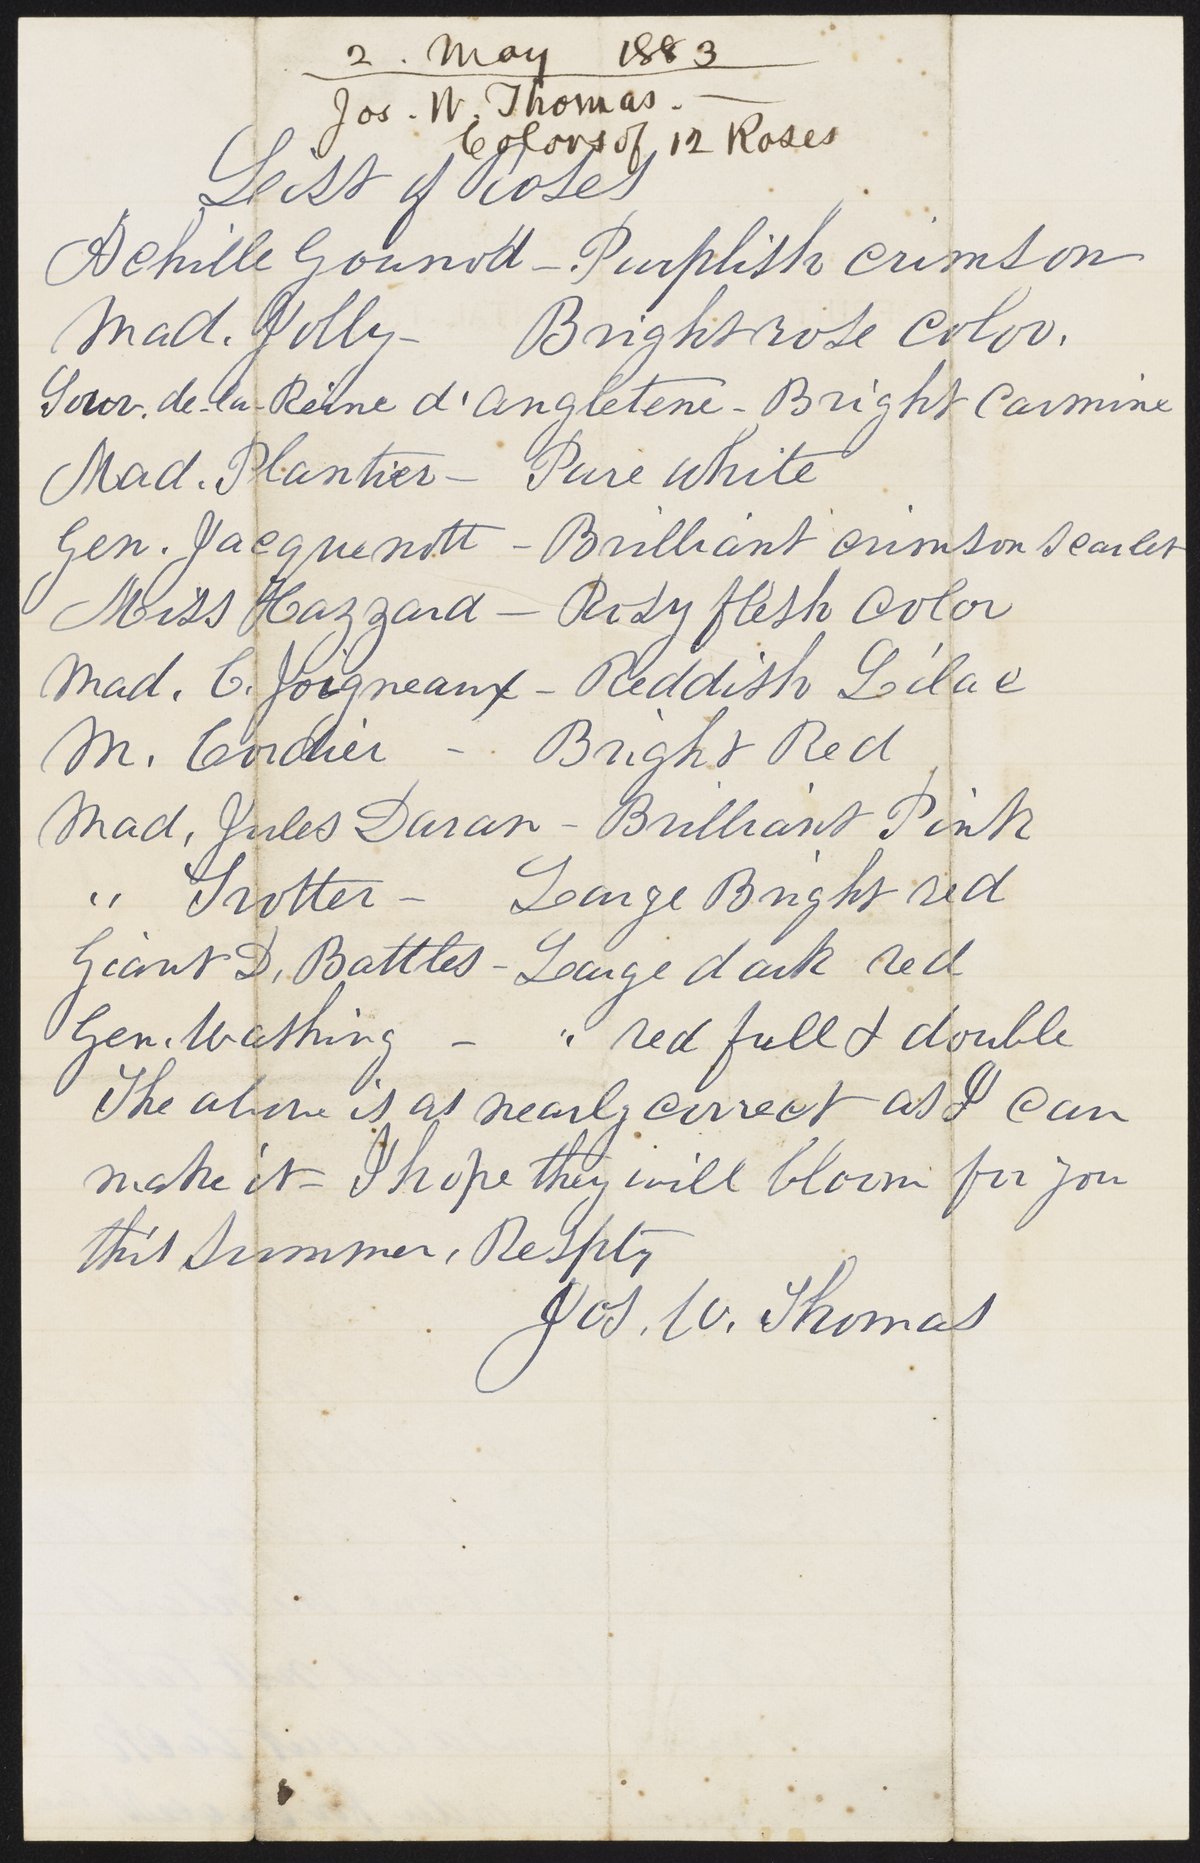 2. May 1883
Jos. W. Thomas.
Colors of 12 Roses
List of Roses
Achille Gounod - Purplish crimson
Mad. Jolly - Bright rose color.
Souv. de-la-Reine d'angleterre - Bright Carmine
Mad. Plantier - Pure white
Gen. Jacquenott - Brilliant crimson scarlet
Miss Hazzard - Rosy flesh color
Mad. C. Joigneaux - Reddish Lilac
M. Cordier - Bright Red
Mad. Jules Daran - Brilliant Pink
" Trotter - Large Bright red
Giant D. Battles - Large dark red
Gen. Washing - " red full & double
The above is as nearly correct as I can
make it - I hope they will bloom for you
this summer, Respty
Jos. W. Thomas